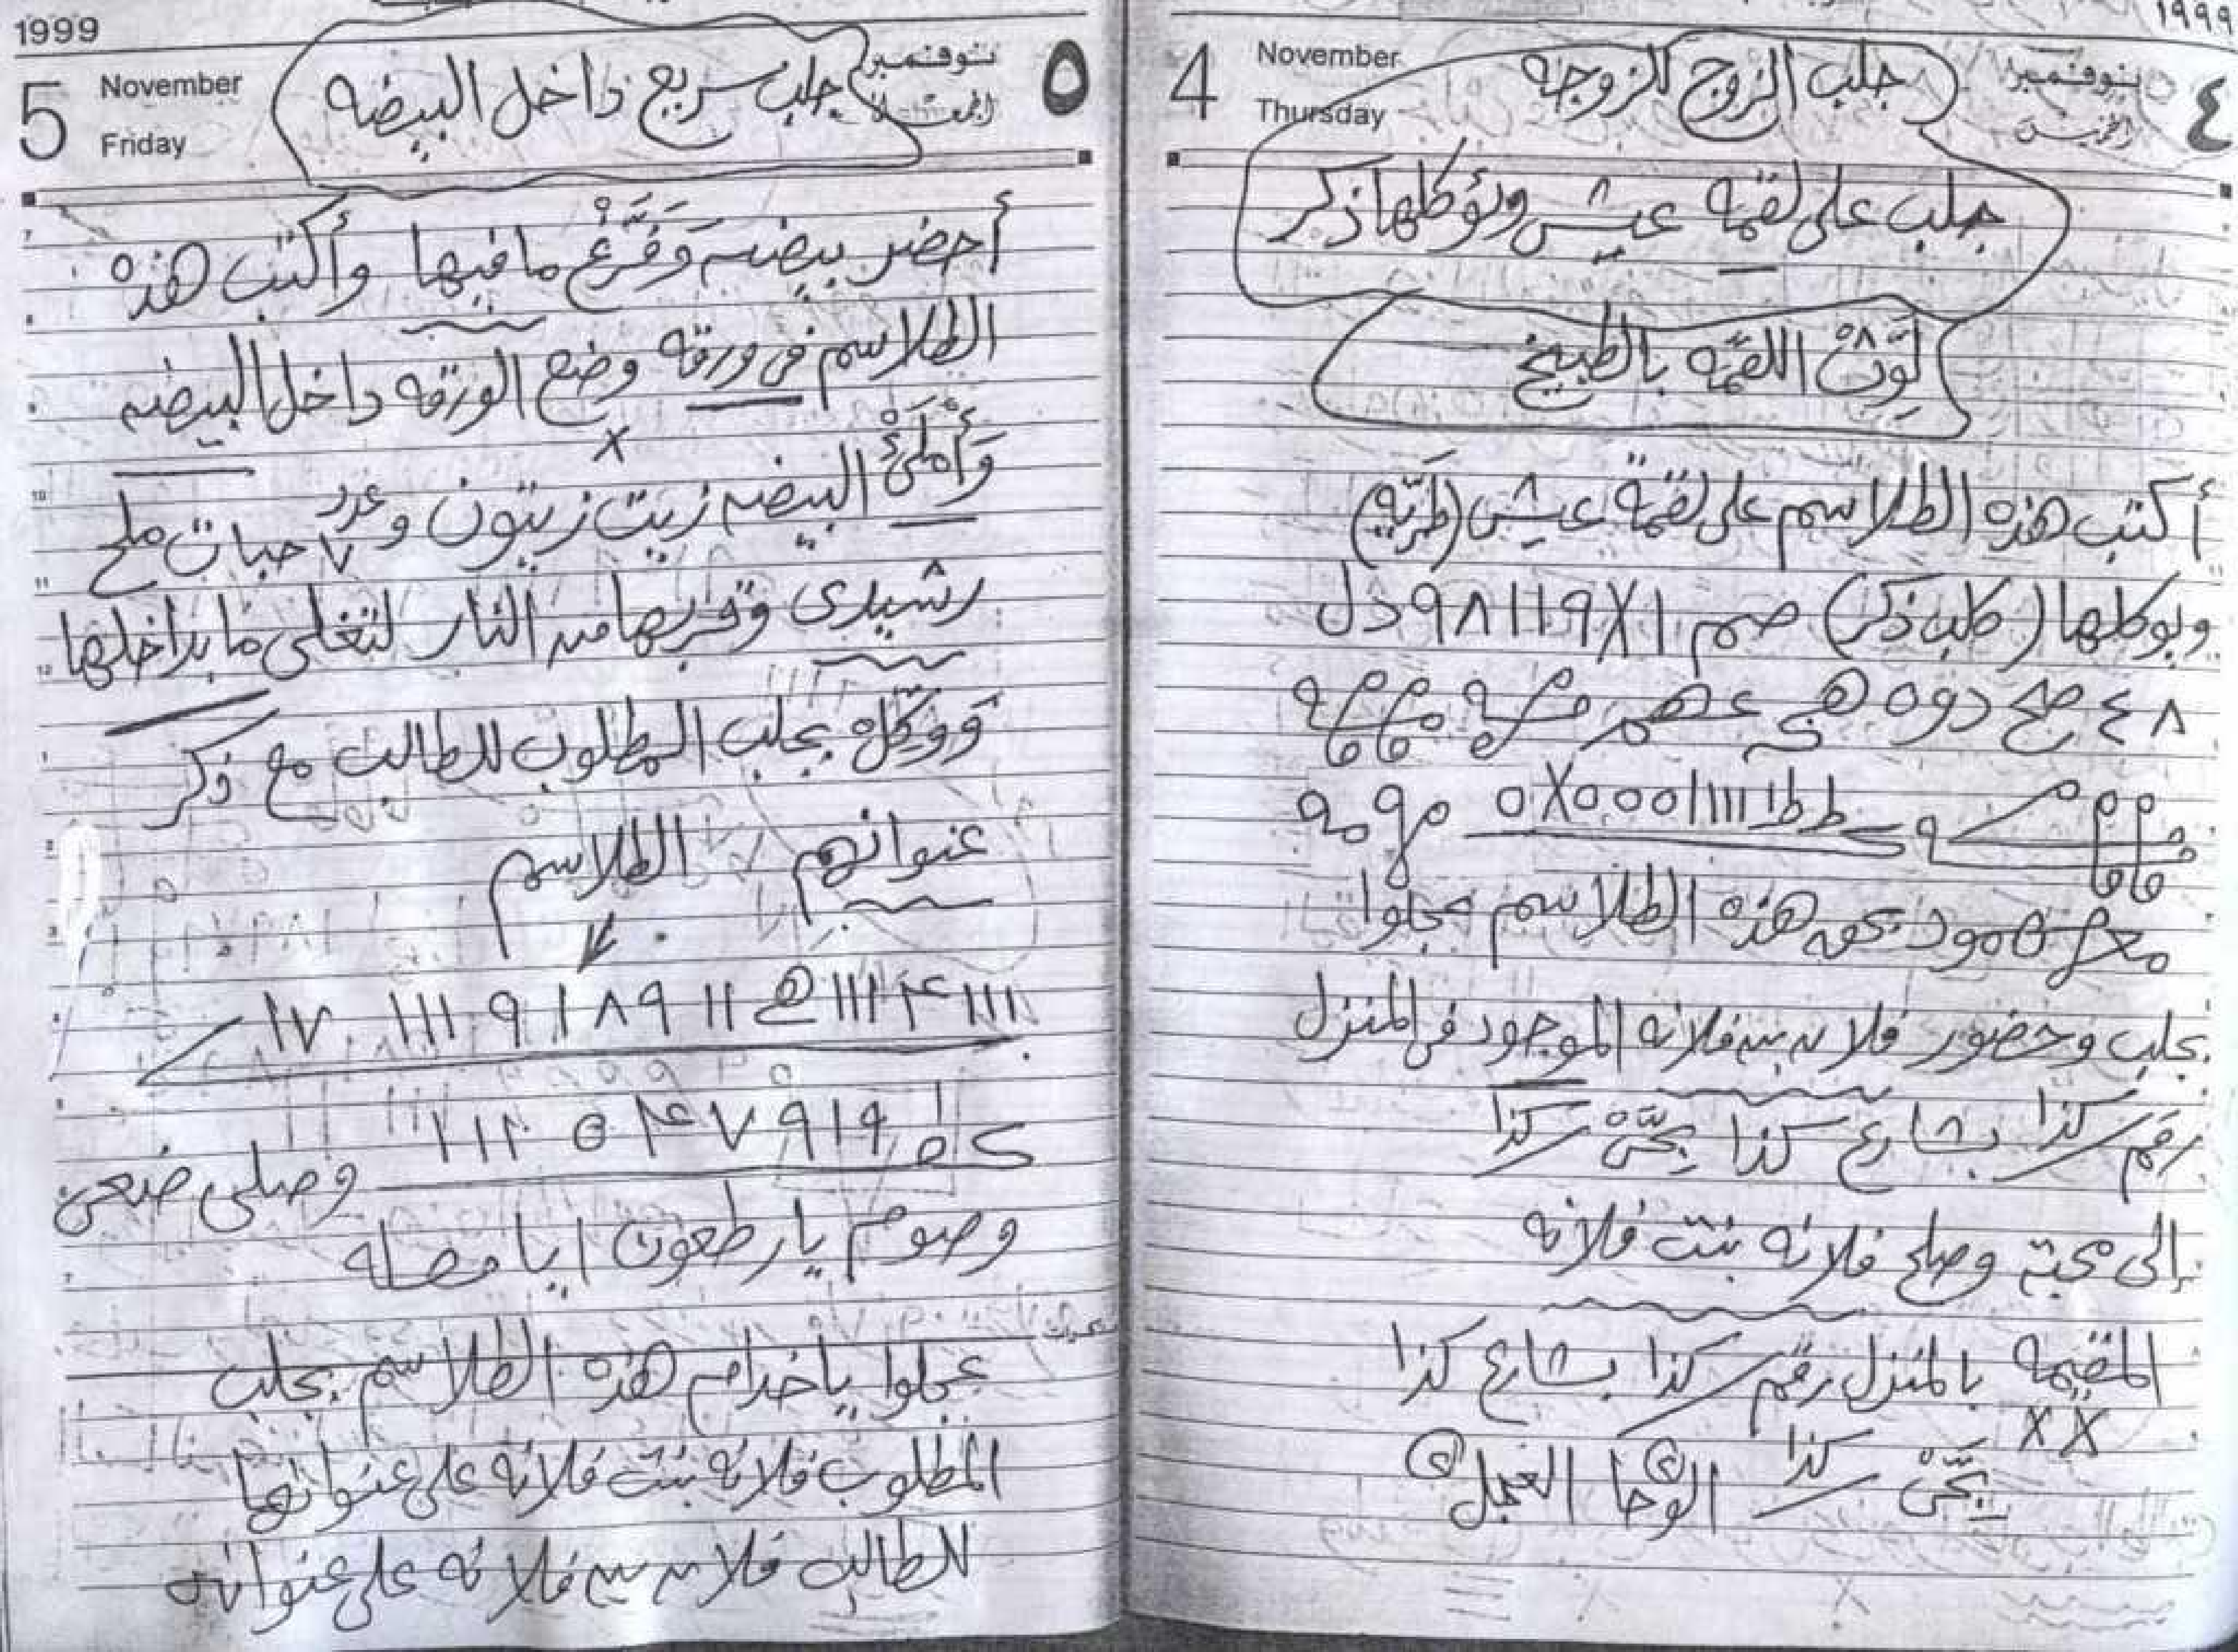 ١٩٩٩
4 November Thursday
نوفمبر الخميس ٤
جلب الزوج للزوجه
جلب على لقمه عيش وتؤكلها ذكر
لَوِّثْ اللقمَه بالطبيخ
أكتب هذه الطلاسم على لقمة عيش (طَريّه)
ويوكلها (كلب ذكر) صم ٩٨١١٩X١ دل
٨ ٤ صح دوه هج عصم
ططا١١١١٥٥٥X٥
بحق هذه الطلاسم عجلوا
بجلب وحضور فلان بن فلانه الموجود فى المنزل
رقم كذا بشارع كذا بحَىّْ كذا
إلى محبة وصلح فلانه بنت فلانه
المقيمه بالمنزل رقم كذا بشارع كذا
XX
بحَىّْ كذا الوحا٢ العجل٢
1999
5 November Friday
نوفمبر الجمعة ٥
جلب سريع داخل البيضه
أحضر بيضه وَفَرَّغْ ما فيها وأكتب هذه
الطلاسم فى ورقه وضع الورقه داخل البيضه
X
وَأَملَئْ البيضه زيت زيتون وعدد ٧ حبات ملح
رشيدى وقربها من النار لتغلى ما بداخلها
وَوَكِّلْ بجلب المطلوب للطالب مع ذكر
عنوانهم الطلاسم
١١١ ٤ ١١١ ١١ ٨٩ ١ ٩ ١١١ ١٧
٩١٩ ٧ ٤ ٥ ١١٢ وصلى
وصوم يا رطعون ايا مصله
عجلوا يا خدام هذه الطلاسم بجلب
المطلوب فلانه بنت فلانه على عنوانها
للطالب فلان بن فلانه على عنوانه